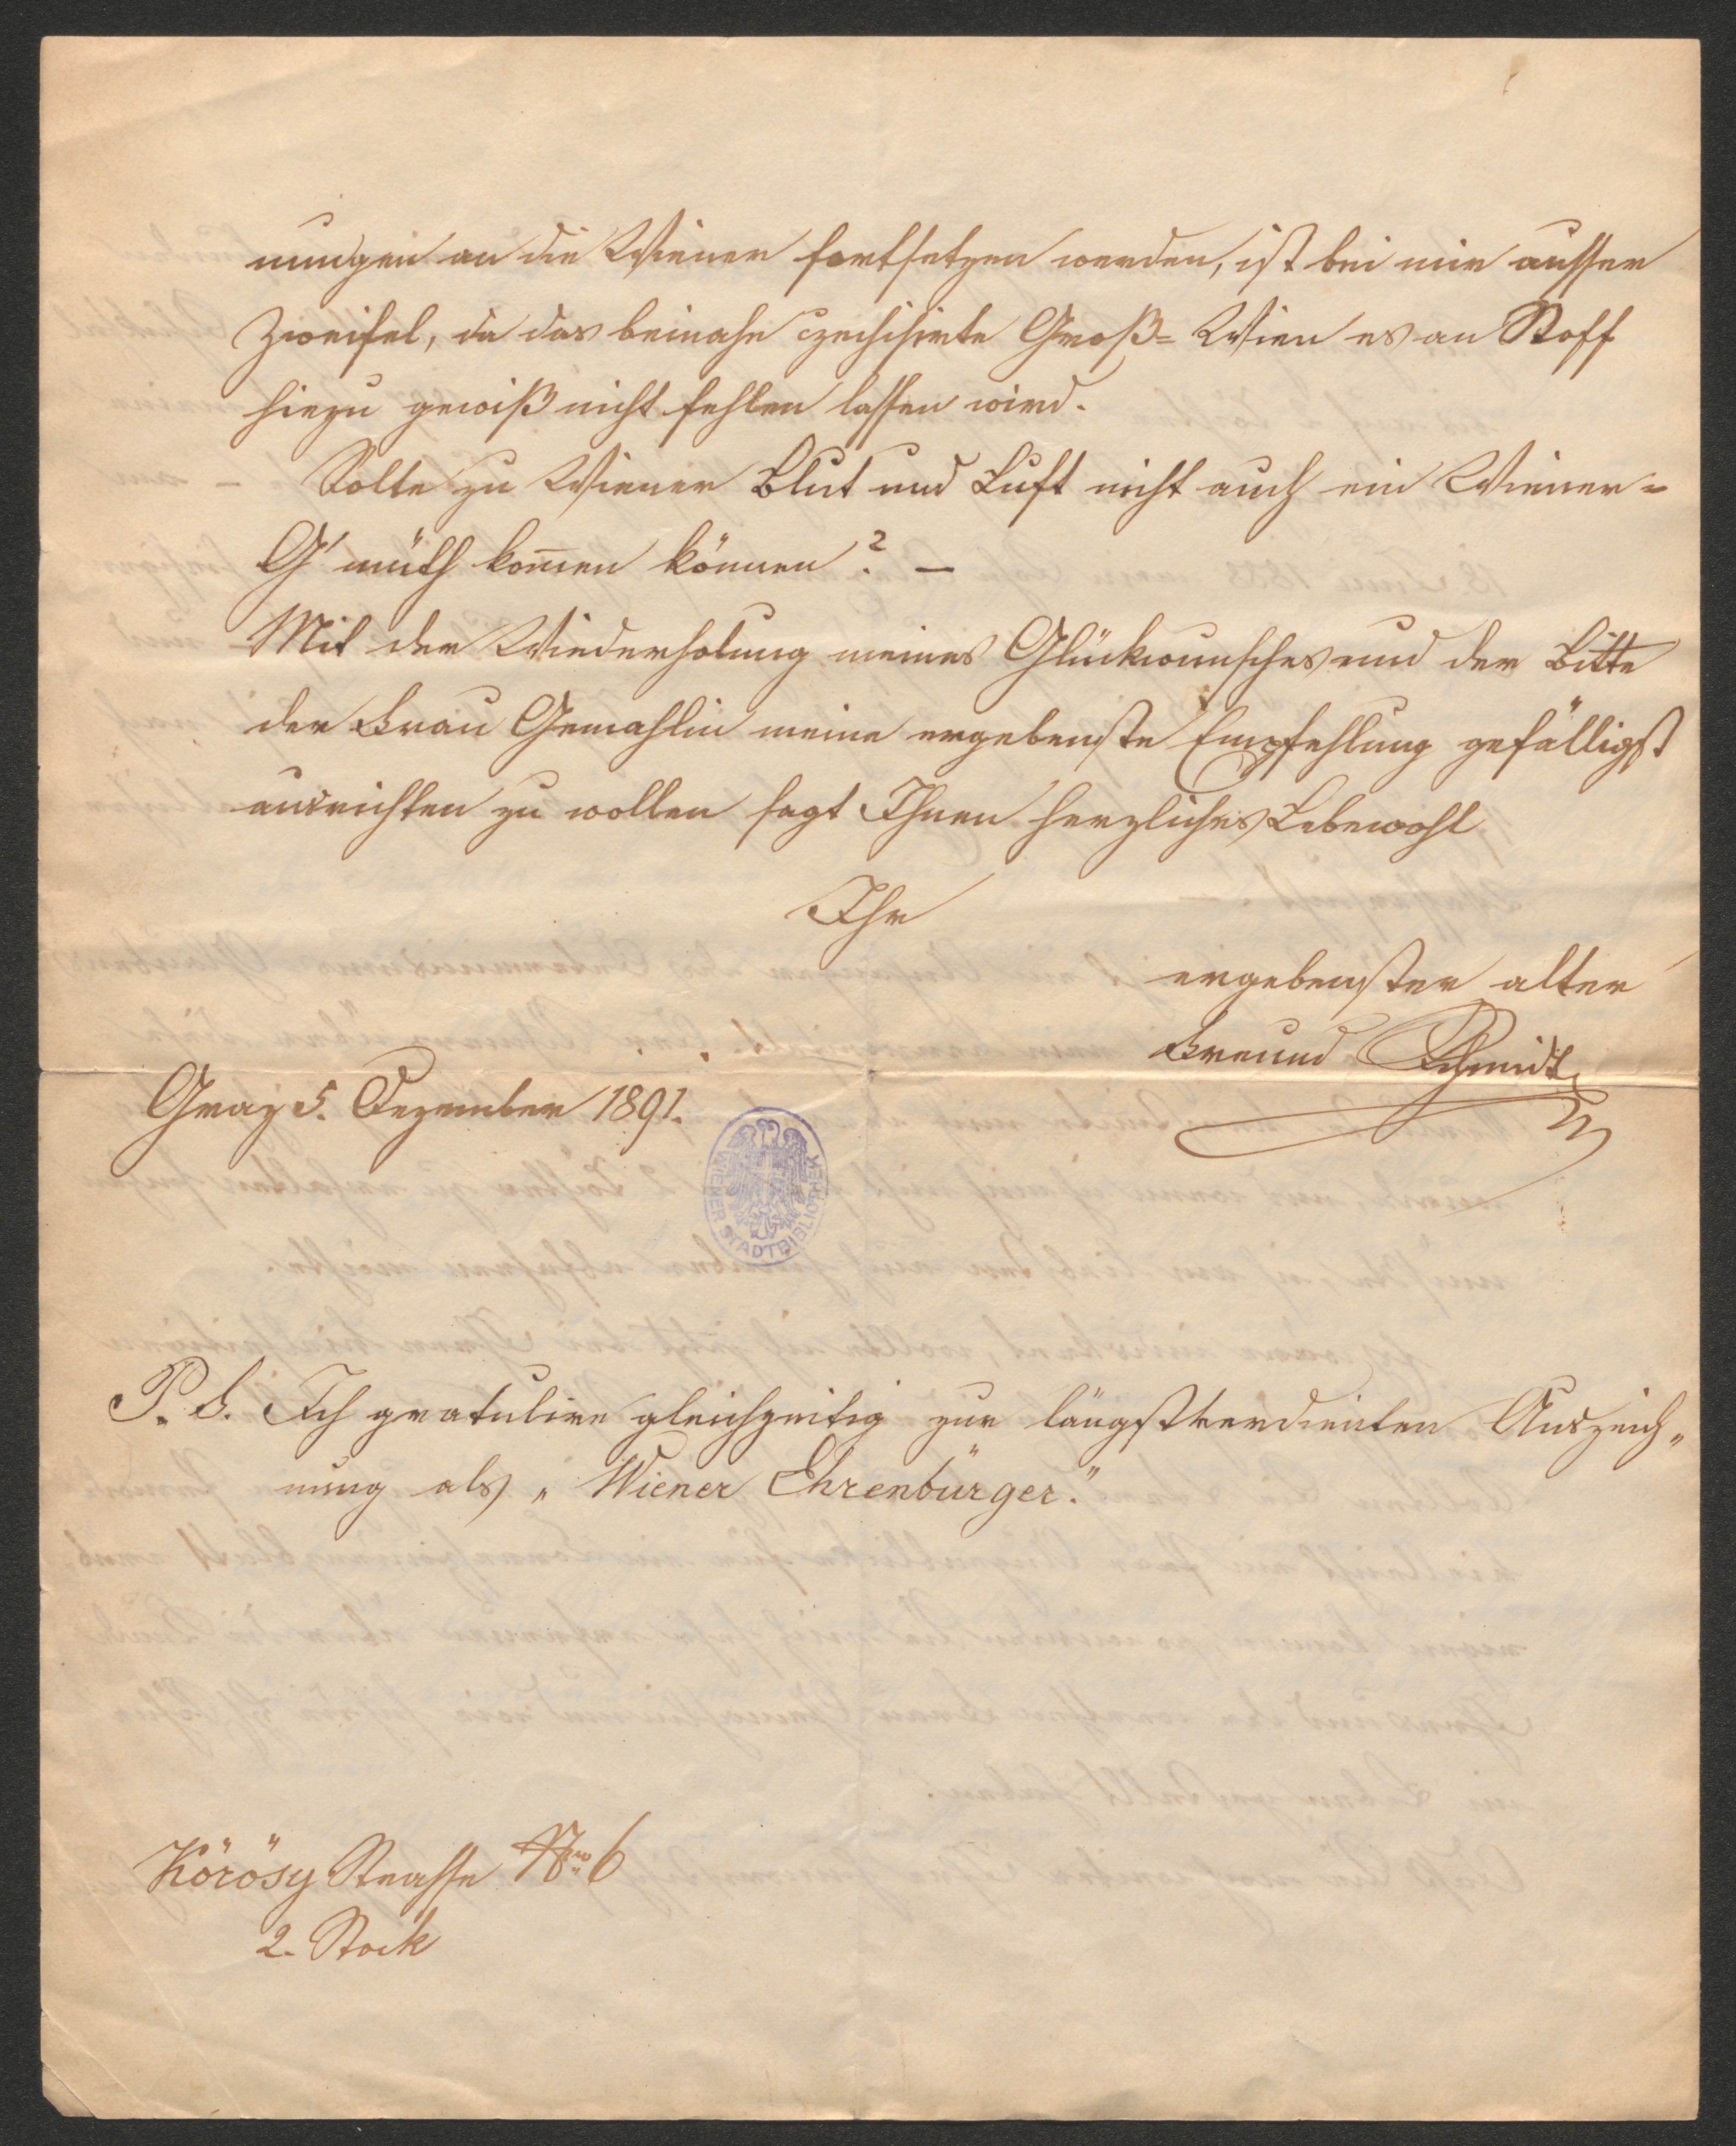 nungen an die Wiener fortsetzen werden, ist bei mir ausser
Zweifel, da das beinahe czechisirte Groß-Wien es an Stoff
hiezu gewiß nicht fehlen lassen wird.
Solte zu Wiener Blut und Luft nicht auch ein Wiener-
G'müth kom̅en können? –
Mit der Wiederholung meines Glückwunsches und der Bitte
der Frau Gemahlin meine ergebenste Empfehlung gefälligst
ausrichten zu wollen sagt Ihnen herzliches Lebewohl
Ihr
ergebenster alter
Freund Schmidt
Graz 5. Dezember 1891.
WIENER STADTBIBLIOTHEK
P. S. Ich gratulire gleichzeitig zur längstverdienten Auszeich„
nung als „Wiener Ehrenbürger."
Körösy Strasse Nro 6
2. Stock